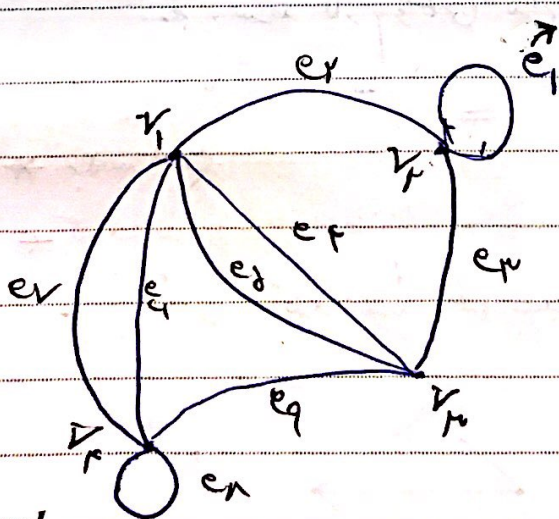 e۲
e۱
V۱
V۲
e۴
e۳
e۵
e۷
e۶
e۹
V۳
V۴
e۸